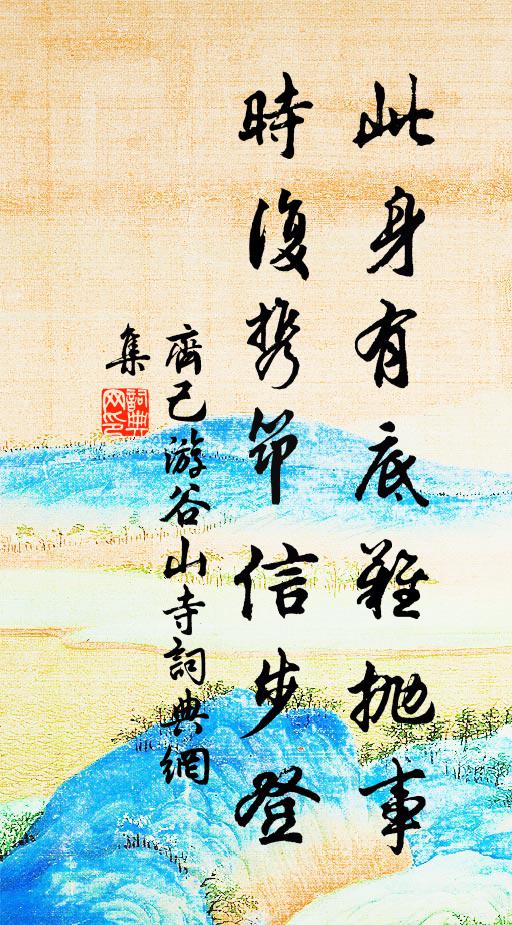 此身有底難抛事
時復携筇信步登
齊己游谷山寺詞典網
集
詞典
网印